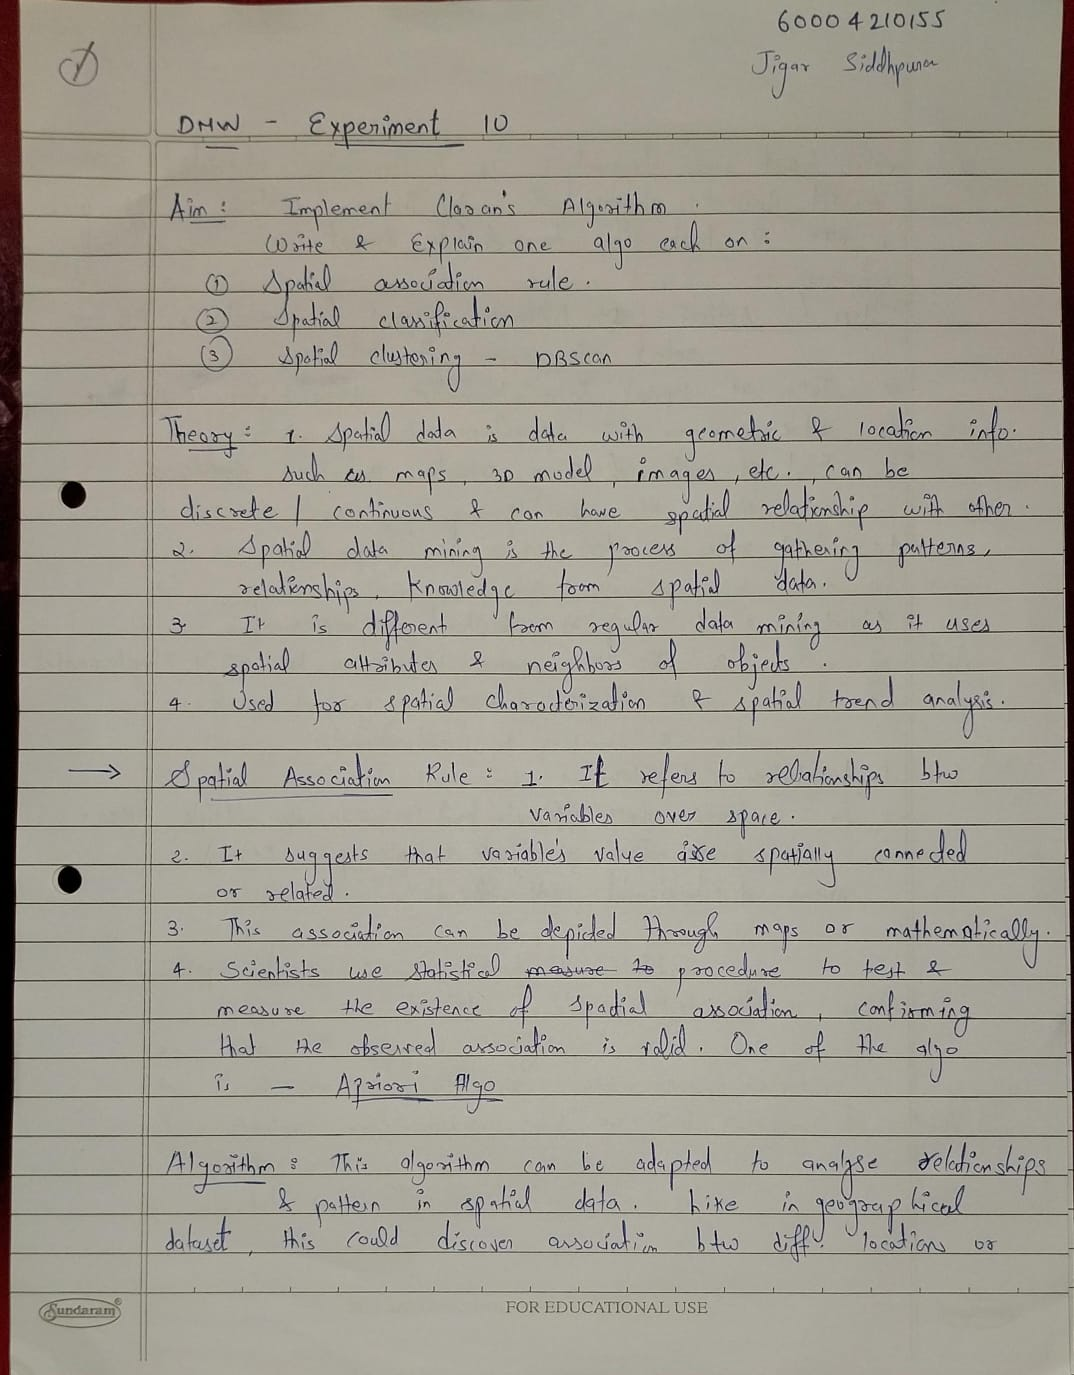 60004210155
Jigar Siddhpura
1
DMW - Experiment 10
Aim : Implement Claran's Algorithm .
Write & Explain one algo each on :
① Spatial association rule .
② Spatial classification
③ Spatial clustering - DBScan
Theory : 1. Spatial data is data with geometric & location info.
such as maps, 3D model, images, etc., can be
discrete / continuous & can have spatial relationship with other .
2. Spatial data mining is the process of gathering patterns,
relationships, knowledge from spatial data.
3 It is different from regular data mining as it uses
spatial attributes & neighbors of objects .
4. Used for spatial characterization & spatial trend analysis.
→ Spatial Association Rule : 1. It refers to relationships btw
variables over space .
2. It suggests that variable's value are spatially connected
or related .
3. This association can be depicted through maps or mathematically.
4. Scientists use statistical measure to procedure to test &
measure the existence of spatial association, confirming
that the observed association is valid. One of the algo
is - Apriori Algo
Algorithm : This algorithm can be adapted to analyse relationships
& pattern in spatial data. Like in geographical
dataset, this could discover association btw diff. locations or
Sundaram®
FOR EDUCATIONAL USE